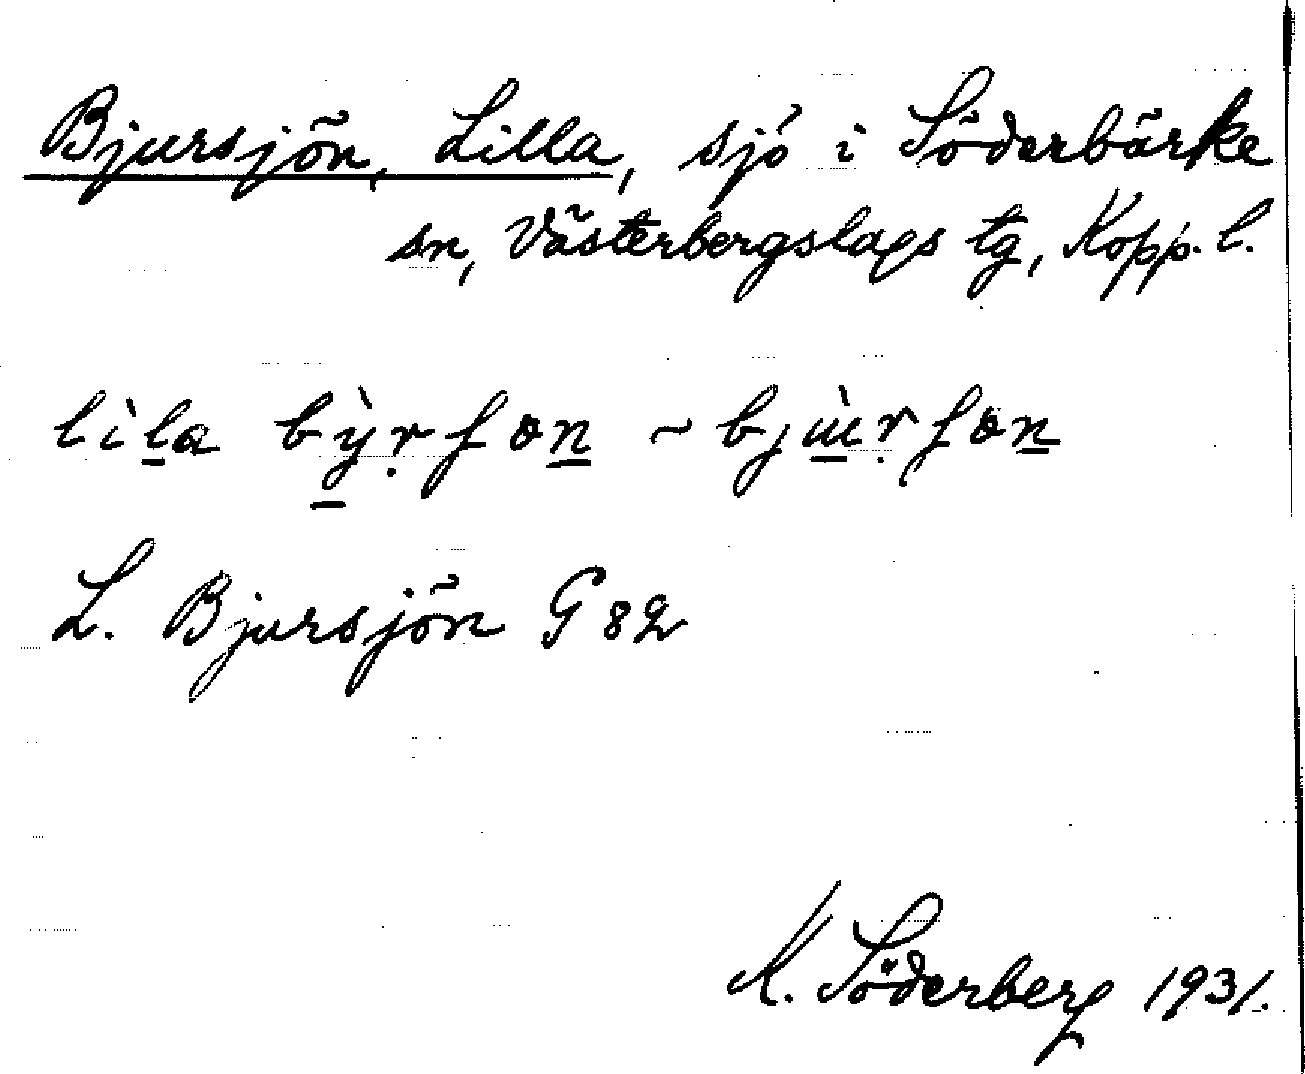 Bjursjön, Lilla, sjö i Söderbärke
sn, Västerbergslags tg, Kopp. l.
lìla bỳr̩ʃɷn ~ bjɯ̀r̩ʃɷn
L. Bjursjön G 82
K. Söderberg 1931.